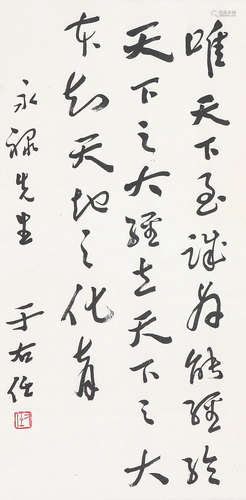 唯天下至誠為能經綸
天下之大經立天下之大
本知天地之化育
永祿先生
于右任